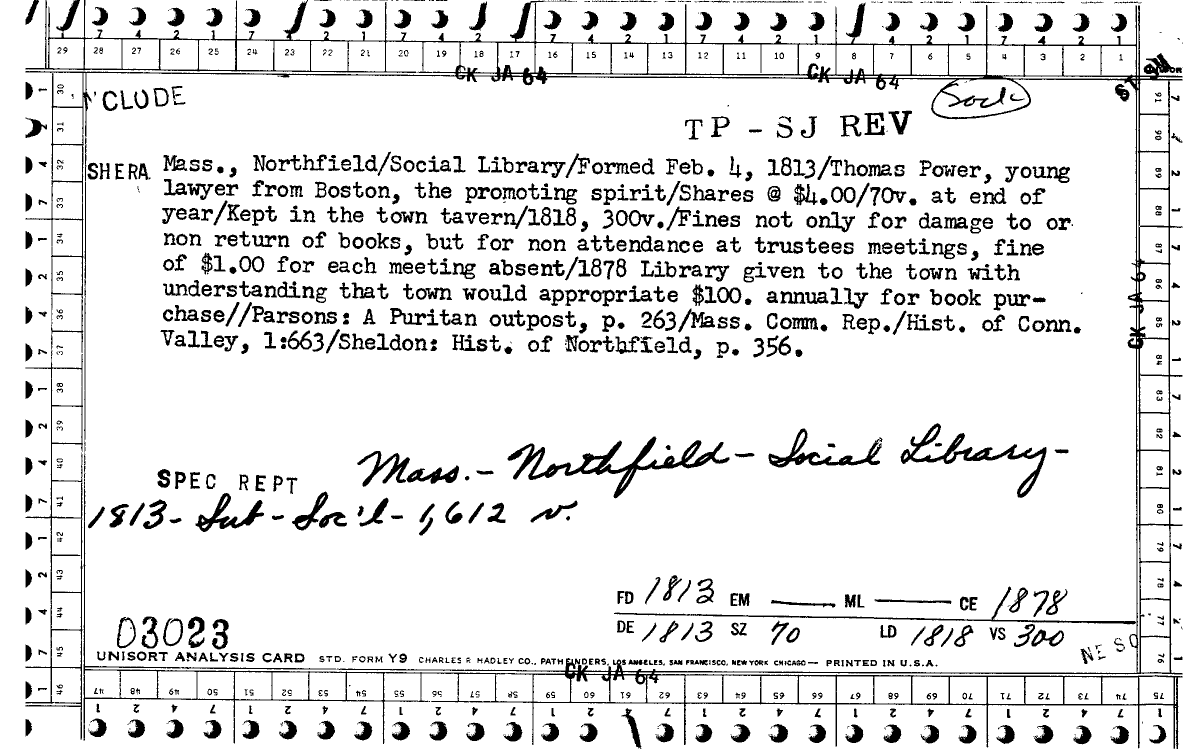 7 4 2 1 7 4 2 1 7 4 2 1 7 4 2 1 7 4 2 1 7 4 2 1 7 4 2 1
29 28 27 26 25 24 23 22 21 20 19 18 17 16 15 14 13 12 11 10 9 8 7 6 5 4 3 2 1
CK JA 64 CK JA 64
N'CLUDE
Socl
TP - SJ REV
SHERA Mass., Northfield/Social Library/Formed Feb. 4, 1813/Thomas Power, young
lawyer from Boston, the promoting spirit/Shares @ $4.00/70v. at end of
year/Kept in the town tavern/1818, 300v./Fines not only for damage to or
non return of books, but for non attendance at trustees meetings, fine
of $1.00 for each meeting absent/1878 Library given to the town with
understanding that town would appropriate $100. annually for book pur-
chase//Parsons: A Puritan outpost, p. 263/Mass. Comm. Rep./Hist. of Conn.
Valley, 1:663/Sheldon: Hist. of Northfield, p. 356.
CK JA 64
SPEC REPT Mass. - Northfield - Social Library -
1813 - Sub - Soc'l - 1,612 v.
FD 1813 EM — ML — CE 1878
DE 1813 SZ 70 LD 1818 VS 300
D3023
NE SO
UNISORT ANALYSIS CARD STD. FORM Y9 CHARLES R HADLEY CO., PATHFINDERS, LOS ANGELES, SAN FRANCISCO, NEW YORK CHICAGO — PRINTED IN U.S.A.
CK JA 64
47 48 49 50 51 52 53 54 55 56 57 58 59 60 61 62 63 64 65 66 67 68 69 70 71 72 73 74 75
1 2 4 7 1 2 4 7 1 2 4 7 1 2 4 7 1 2 4 7 1 2 4 7 1 2 4 7 1